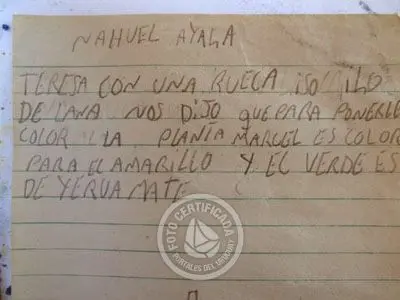 NAHUEL AYALA
TERESA CON UNA RUECA iSO iLO
DE LANA NOS DiJO QUE PARA PONERLE
COLOR A LA PLANTA MARCEL ES COLOR
PARA EL AMARILLO Y EL VERDE ES
DE YERVA MATE
FOTO CERTIFICADA
PORTALES DEL URUGUAY